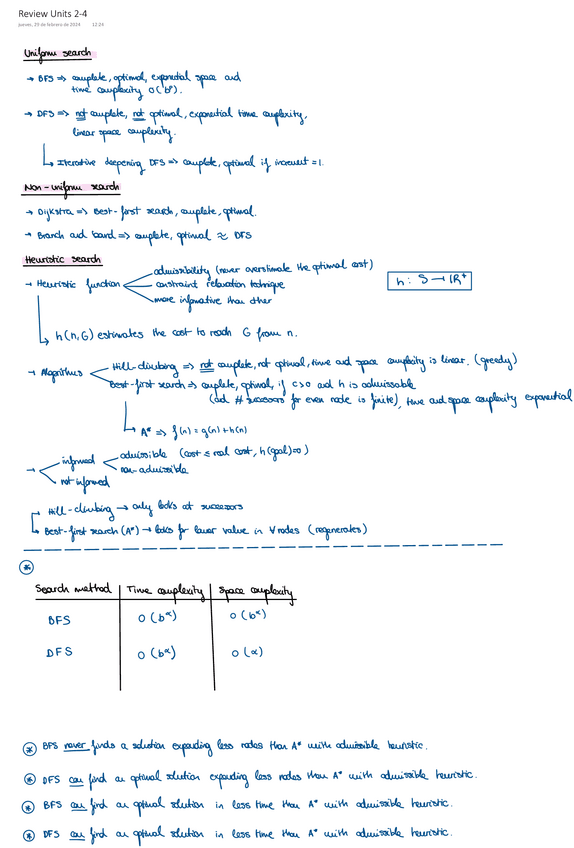 Review Units 2-4
jueves, 29 de febrero de 2024 12:24
Uniform search
→ BFS => complete, optimal, exponential space and
time complexity O(bᵈ).
→ DFS => not complete, not optimal, exponential time complexity,
linear space complexity.
↳ Iterative deepening DFS => complete, optimal if increment = 1.
Non-uniform search
→ Dijkstra => Best-first search, complete, optimal.
→ Branch and bound => complete, optimal ≈ DFS
Heuristic search
→ Heuristic function
admissibility (never overestimate the optimal cost)
constraint relaxation technique
more informative than other
h: S → ℝ⁺
↳ h(n,G) estimates the cost to reach G from n.
→ Algorithms
Hill-climbing => not complete, not optimal, time and space complexity is linear. (greedy)
Best-first search => complete, optimal, if c>0 and h is admissable
(and # successors for even node is finite), time and space complexity exponential
↳ A* => f(n) = g(n) + h(n)
→ informed
admissible (cost ≤ real cost, h(goal)=0)
non-admissible
not informed
Hill-climbing → only looks at successors
Best-first search (A*) → looks for lower value in ∀ nodes (regenerates)
*
Search method | Time complexity | Space complexity
BFS O(b^α) O(b^α)
DFS O(b^α) O(α)
* BFS never finds a solution expanding less nodes than A* with admissible heuristic.
* DFS can find an optimal solution expanding less nodes than A* with admissible heuristic.
* BFS can find an optimal solution in less time than A* with admissible heuristic.
* DFS can find an optimal solution in less time than A* with admissible heuristic.